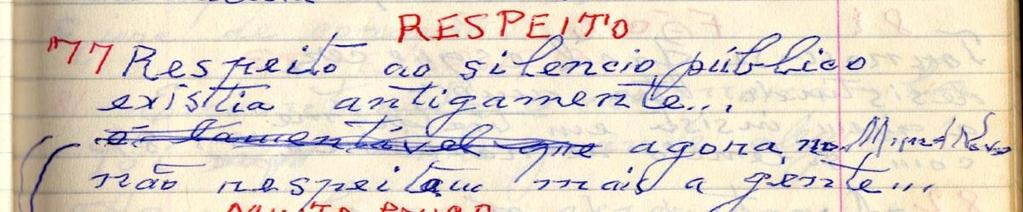 RESPEITO
"77 Respeito ao silencio público
existia antigamente...
é lamentável que agora, no
não respeitam mais a gente...